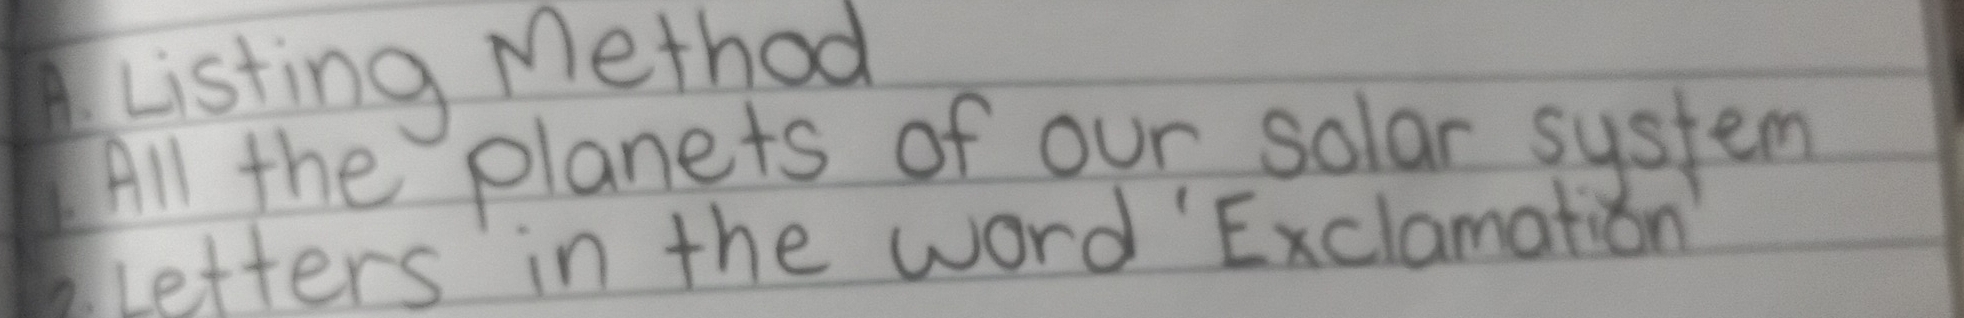 A. Listing Method
1. All the planets of our solar system
2. Letters in the word 'Exclamation'